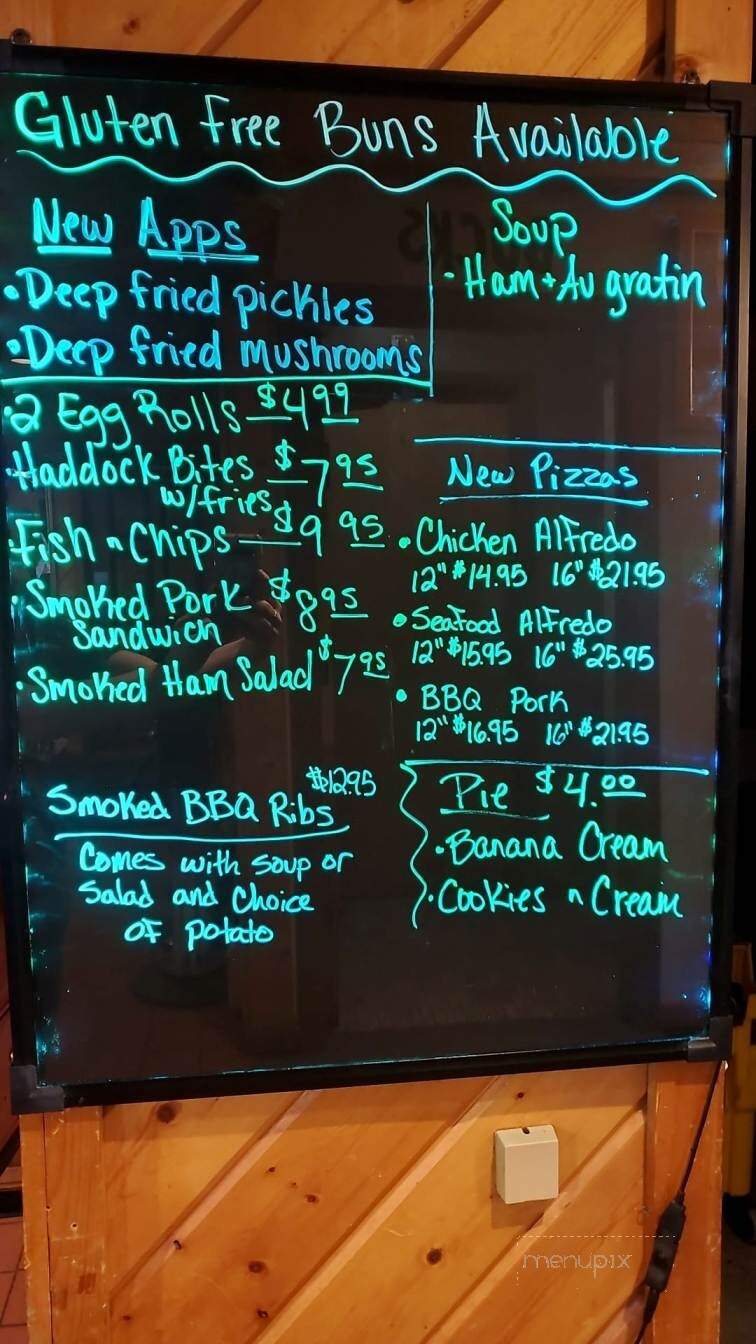 Gluten Free Buns Available
New Apps
• Deep fried pickles
• Deep fried mushrooms
Soup
• Ham + Au gratin
• 2 Egg Rolls $4 99
• Haddock Bites $7 95
w/fries
• Fish n Chips $9 95
• Smoked Pork $8 95
Sandwich
• Smoked Ham Salad $7 95
New Pizzas
• Chicken Alfredo
12" $14.95 16" $21.95
• Seafood Alfredo
12" $15.95 16" $25.95
• BBQ Pork
12" $16.95 16" $21.95
Smoked BBQ Ribs $12.95
Comes with soup or
Salad and Choice
of potato
Pie $4.00
• Banana Cream
• Cookies n Cream
menupix